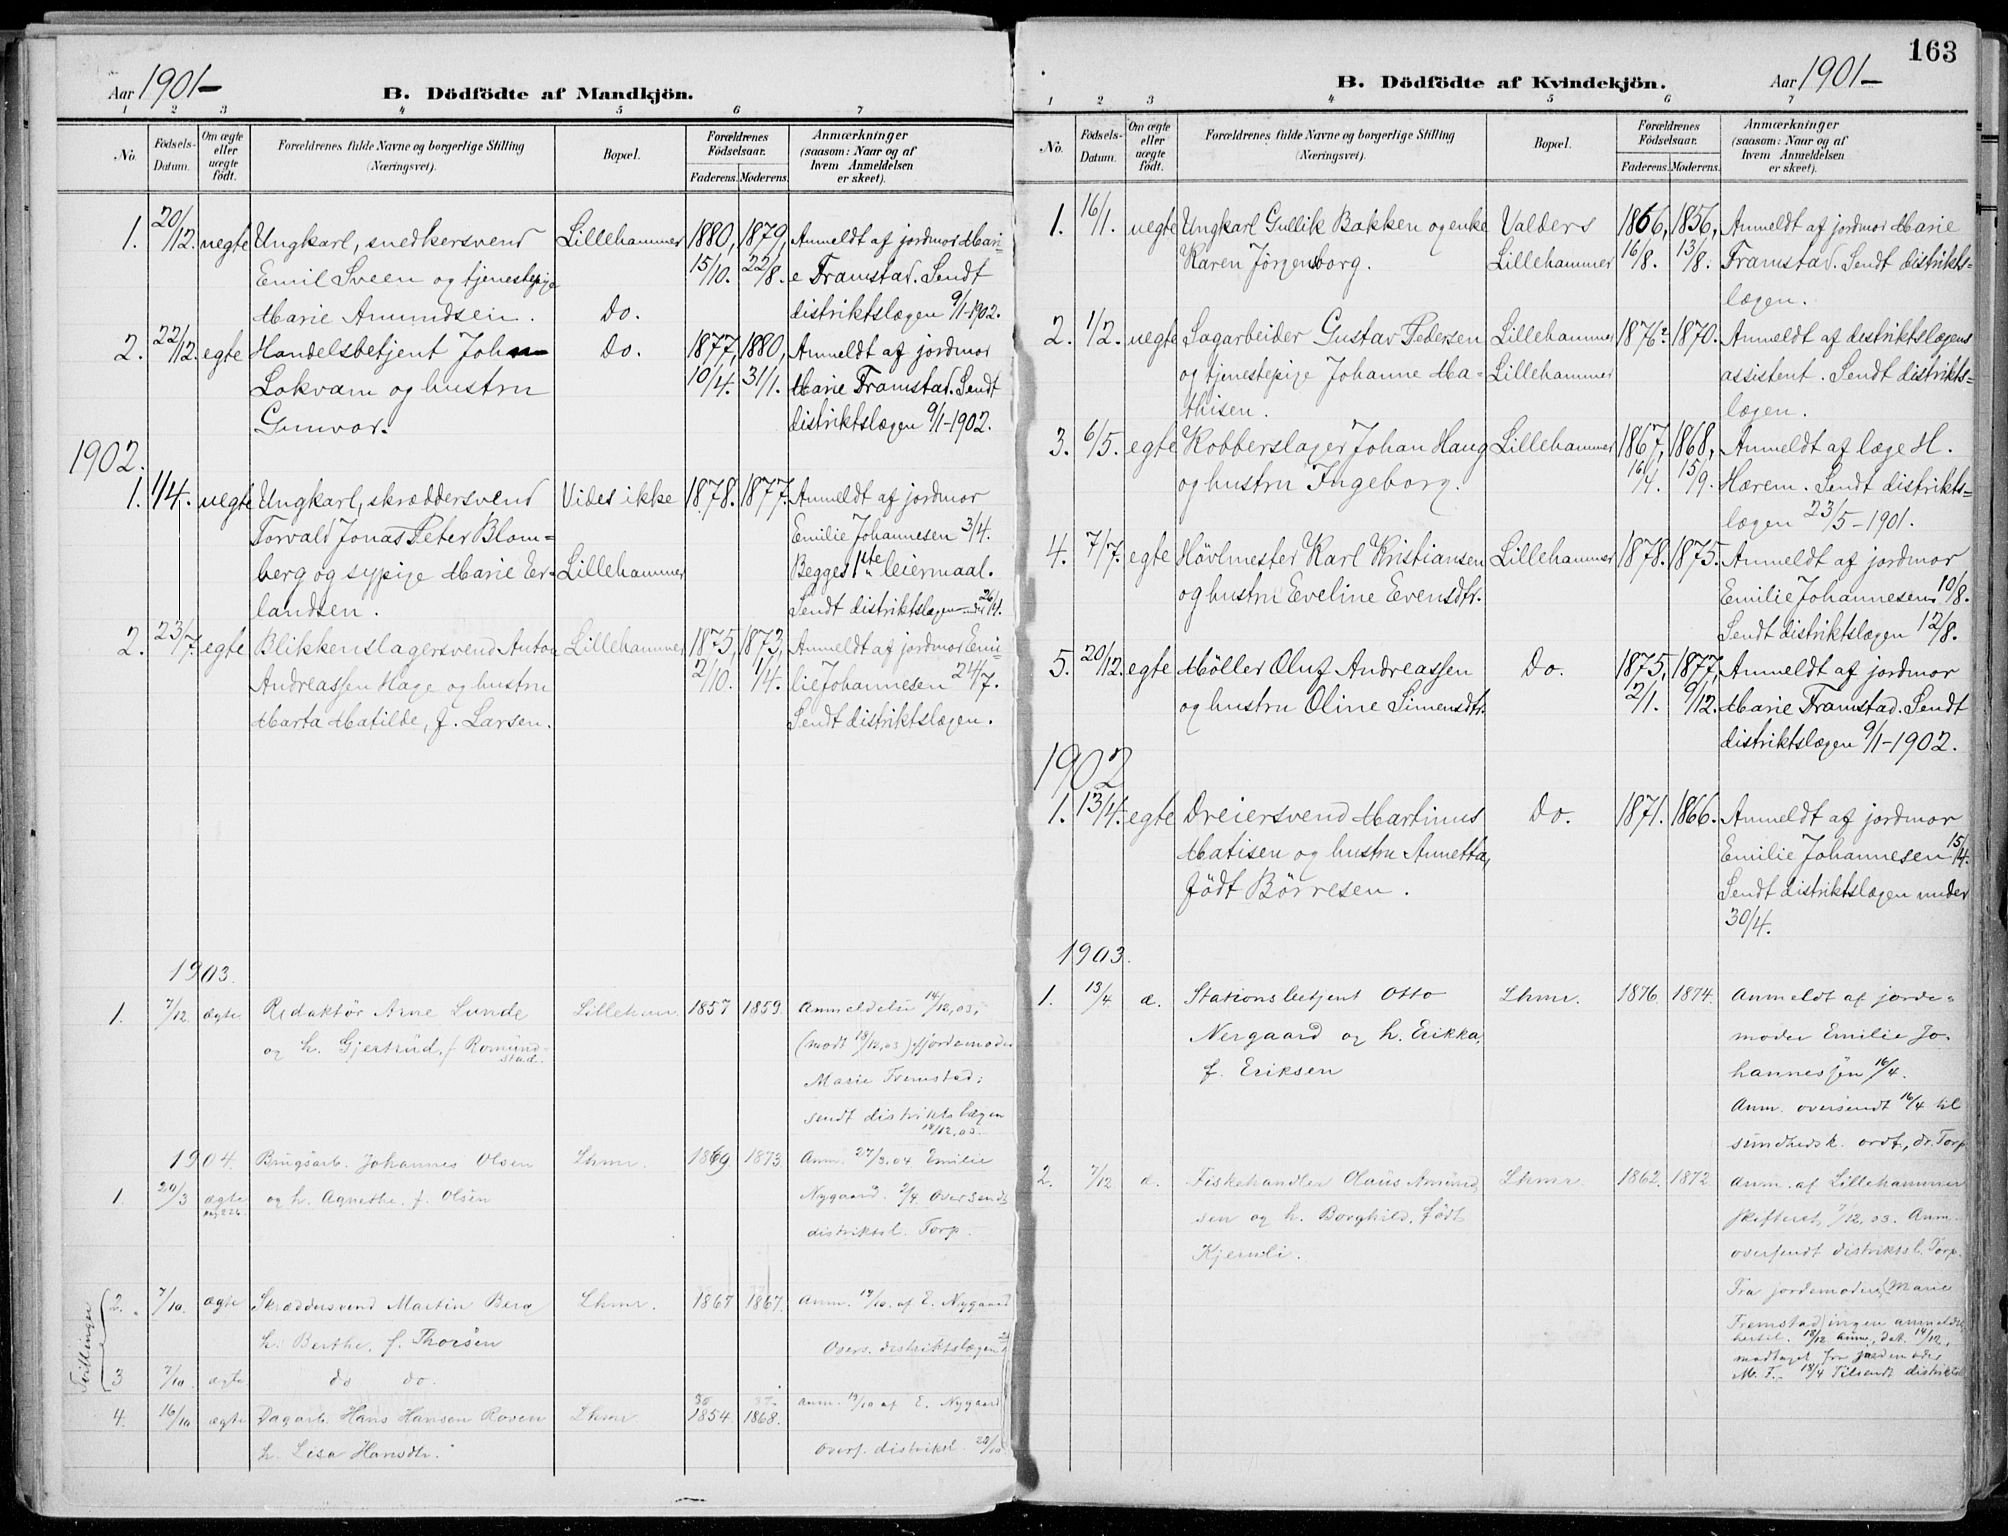 Aar 1901-
B. Dödfödte af Mandkjön.
1 2 3 4 5 6 7
No.
Födsels-Datum.
Om ægte eller uægte födt.
Forældrenes fulde Navne og borgerlige Stilling (Næringsvei).
Bopæl.
Forældrenes Födselsaar.
Faderens. Moderens.
Anmærkninger (saasom: Naar og af hvem Anmeldelsen er skeet).
1. 20/12. uegte Ungkarl, snedkersvend Lillehammer 1880, 1879, Anmeldt af jordmor Mari-
Emil Sveen og tjenestepige 15/10. 22/8. e Framstad. Sendt
Marie Amundsen. Do. distriktslægen 9/1-1902.
2. 22/12. egte Handelsbetjent Johan Do. 1877, 1880, Anmeldt af jordmor
Lokvam og hustru 10/4. 31/1. Marie Framstad. Sendt
Gunvor. distriktslægen 9/1-1902.
1902.
1. 1/4. uegte Ungkarl, skræddersvend Vides ikke 1878. 1877. Anmeldt af jordmor
Torvald Jonas Peter Blom= Emilie Johannesen 3/4.
berg og sypige Marie Er- Lillehammer Begges 1ste leiermaal.
landsen. Sendt distriktslægen 26/4.
2. 23/7. egte Blikkenslagersvend Anton Lillehammer 1875, 1873, Anmeldt af jordmor Emi-
Andreassen Hage og hustru 2/10. 1/4. lie Johannesen 24/7.
Marta Matilde, f. Larsen. Sendt distriktslægen.
1903.
1. 7/12 ægte Redaktør Arne Lunde Lilleham. 1857 1859. Anmeldelse 14/12,03,
og h. Gjertrud, f Romund- (modt 18/12,03) af jordemoder
stad. Marie Fremstad;
sendt distriktslægen
18/12,03.
1904. Brugsarb. Johannes Olsen Lhmr. 1869 1873. Anm. 27/3.04 Emilie
1. 20/3 ægte og h. Agnethe, f. Olsen Nygaard. 2/4 oversendt
distriktsl. Torp.
Tvillinger
2. 7/10 ægte Skræddersvend Martin Berg Lhmr. 1867. Anm. 19/10. af E. Nygaard
h. Berthe, f. Thorsen Overs. distriktslægen
3 7/10. ægte do do.
4. 16/10 ægte Dagarb. Hans Hansen Roven Lhmr. 1854. 1868. Anm. 19/10 af E. Nygaard
h. Lisa Hansdtr. overs. distriktsl. 20/10
163
B. Dödfödte af Kvindekjön.
Aar 1901-
1 2 3 4 5 6 7
No.
Födsels-Datum.
Om ægte eller uægte födt.
Forældrenes fulde Navne og borgerlige Stilling (Næringsvei).
Bopæl.
Forældrenes Födselsaar.
Faderens. Moderens.
Anmærkninger (saasom: Naar og af hvem Anmeldelsen er skeet).
1. 16/1. uegte Ungkarl Gullik Bakken og enke Valders 1856, Anmeldt af jordmor Marie
Karen Jörgensborg. Lillehammer 16/8. 13/8. Framstad. Sendt distrikts=
lægen.
2. 1/2. uegte Sagarbeider Gustav Pedersen Lillehammer 1876? 1870. Anmeldt af distriktslægens
og tjenestepige Johanne Ma- Lillehammer assistent. Sendt distrikts=
thisen. lægen.
3. 6/5. egte Kobberslager Johan Haug Lillehammer 1867, 1868, Anmeldt af læge H.
og hustru Ingeborg. 15/9. Hærem. Sendt distrikts=
lægen 23/5-1901.
4. 7/7. egte Hövlmester Karl Kristiansen Lillehammer 1878. 1875. Anmeldt af jordmor
og hustru Eveline Evensdtr. Emilie Johannesen 10/8.
Sendt distriktslægen 12/8.
5. 20/12. egte Møller Oluf Andreassen Do. 1875, 1877, Anmeldt af jordmor
og hustru Oline Simensdtr. 2/1. 9/12. Marie Framstad. Sendt
distriktslægen 9/1-1902.
1902
1. 13/4. egte Dreiersvend Martinus Do. 1871. 1866. Anmeldt af jordmor
Matisen og hustru Annetta, Emilie Johannesen 15/4.
födt Børresen. Sendt distriktslægen under
30/4.
1903.
1. 13/4 æ. Stationsbetjent Otto Lhmr. 1876. 1874. Anmeldt af jorde-
Nergaard og h. Erikka, moder Emilie Jo-
f. Eriksen hannessen 16/4.
Anm. oversendt 16/4 til
sundhedsk. ordf., dr. Torp
2. 7/12 æ. Fiskehandler Olaus Amund- Lhmr. 1862. 1872. Anm. af Lillehammer
sen og h. Borghild, født skifteret, 9/12,03. Anm.
Kjernli. oversendt distriktsl. Torp.
Fra jordemoder (Marie
Fremstad) ingen anmeldel
hertil. 18/12 Anm. dat. 14/12,
modtaget fra jordemoder
M. F. 18/4 Tilsendt distriktsl